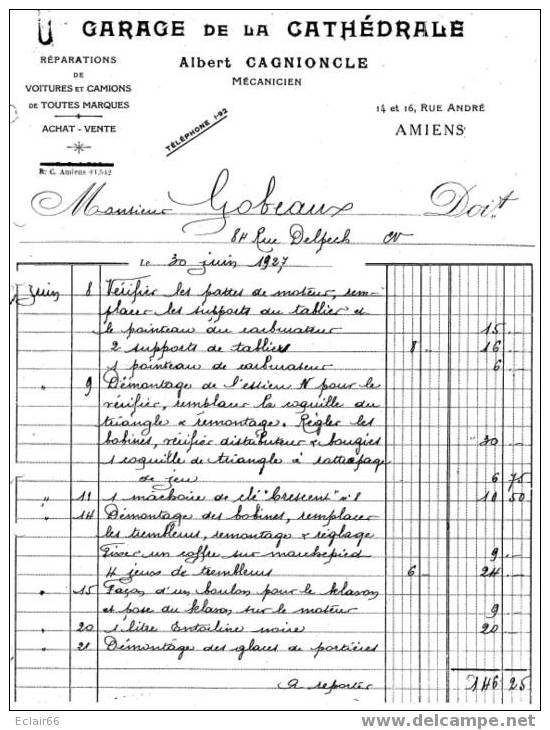 GARAGE DE LA CATHÉDRALE
Albert CAGNIONCLE
MÉCANICIEN
RÉPARATIONS
DE
VOITURES ET CAMIONS
DE TOUTES MARQUES
ACHAT - VENTE
TÉLÉPHONE 1-92
14 et 16, RUE ANDRÉ
AMIENS
R. C. Amiens 11.512
Monsieur Gobeaux Doit
84 Rue Delpech
Le 30 juin 1927
Juin 8 Vérifier les pattes de moteur, rem-
placer les supports du tablier et
le pointeau du carburateur 15 "
2 supports de tabliers 8 " 16 "
1 pointeau de carburateur 6 "
" 9 Démontage de l'essieu N pour le
vérifier, remplacer la coquille du
triangle & remontage. Régler les
bobines, vérifier distributeur & bougies 30 "
1 coquille de triangle à rattrapage
de jeu 6 75
" 11 1 machoire de clé "Crescent" n° 8 10 50
" 14 Démontage des bobines, remplacer
les trembleurs, remontage & réglage
Fixer un coffre sur marchepied 9 "
4 jeux de trembleurs 6 " 24 "
" 15 Façon d'un boulon pour le klaxon
et pose du klaxon sur le moteur 9 "
" 20 1 litre noire 20 "
" 21 Démontage des glaces de portières
A reporter 146 25
Eclair66
delcampe.net